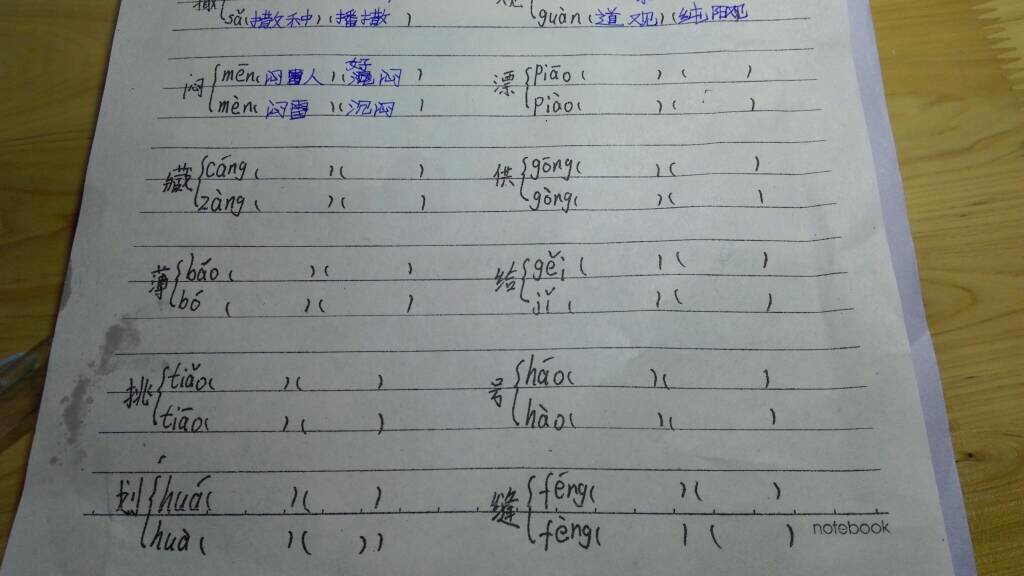 sǎ(撒种)(播撒) guàn(道观)(纯阳观)
闷 mēn(闷雷人)(好闷) 漂 piāo( )( )
mèn(闷雷)(沉闷) piào( )( )
藏 cáng( )( ) 供 gōng( )( )
zàng( )( ) gòng( )( )
薄 báo( )( ) 给 gěi( )( )
bó( )( ) jǐ( )( )
挑 tiǎo( )( ) 号 háo( )( )
tiāo( )( ) hào( )( )
划 huá( )( ) 缝 féng( )( )
huà( )( )) fèng( )( )
notebook